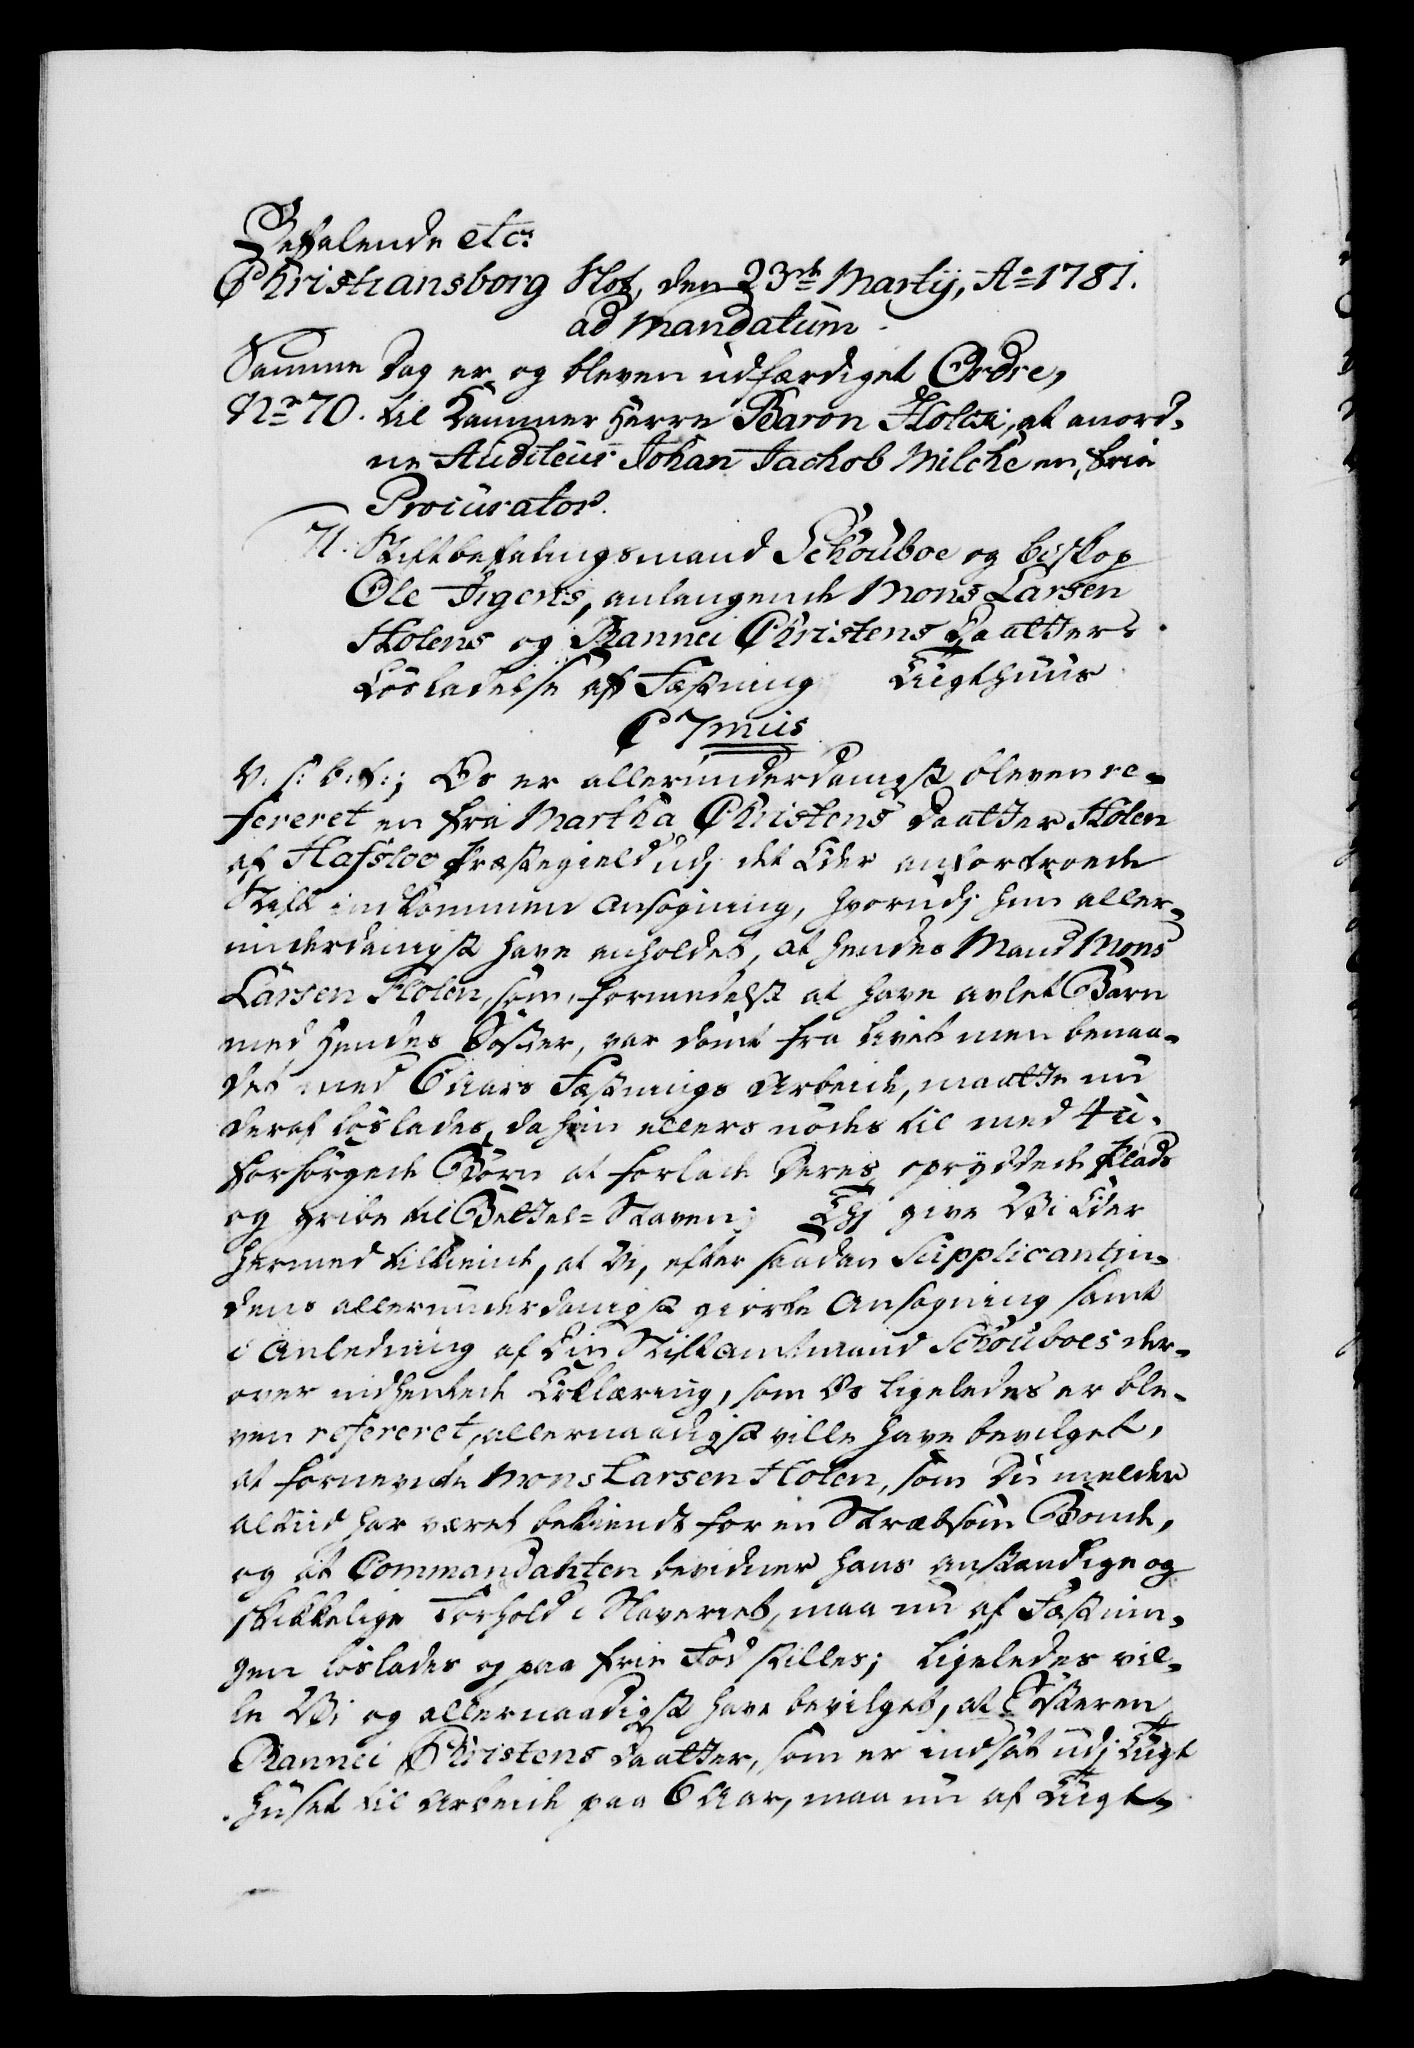 Befalende etc:
Christiansborg Slot, den 23de Martij, Ao 1781.
ad mandatum
Samme Dag er og bleven udfærdiget Ordre,
No 70. til Kammer Herre Baron Holck, at anord-
ne Auditeur Johan Jachob Milche en frie
Procurator.
71. Stiftbefalingsmand Schouboe og biskop
Ole Irgens, anlangende Mons Larsen
Holens og Rannei Christens Daatters
Løsladelse af Fæstning Tugthuus
C 7mus
V. s: b: t:; Os er allerunderdanigst bleven re-
fereret en fra Martha Christens Daatter Holen
af Hafsloe Præstegield udj det Eder anfortroede
Stift indkommen Ansøgning, hvorudj hun aller-
underdanigst have anholdet, at hendes Mand Mons
Larsen Holen, som, formedelst at have avlet Barn
med hendes Søster, var dømt fra Livet men benaa-
det med 6 Aars Fæstnings Arbeide, maatte nu
deraf løslades, da hun ellers nødes til med 4 u-
forsørgede Børn at forlade deres opryddede Plads
og gribe til Bettel-Staven; Thj give Vi Eder
hermed tilkiende, at Vi, efter saadan Supplicantin-
dens allerunderdanigst giorte Ansøgning samt
i Anledning af Din Stiftamtmand Schouboes der-
over indhentede Erklæring, som Os ligeledes er ble-
ven refereret, allernaadigst ville have bevilget,
at fornevnte Mons Larsen Holen, som Du melder
altiid har været bekiendt for en Stræbsom Bonde,
og at Commandanten bevidner hans anstændige og
skikkelige Forhold i Slaveriet, maa nu af Fæstnin-
gen løslades og paa frie Fod stilles; ligeledes vil-
le Vi og allernaadigst have bevilget, at Søsteren
Rannei Christens Daatter, som er indsat udj Tugt
huset til Arbeide paa 6 Aar, maa nu af Tugt-